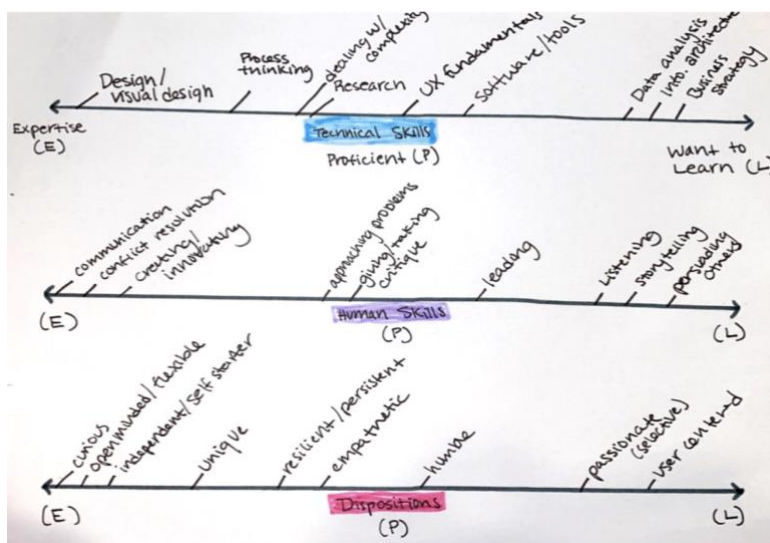 Design/
visual design
Process
thinking
dealing w/
complexity
Research
UX fundamentals
software/tools
Data analysis
Info. architecture
Business
strategy
Expertise
(E)
Technical Skills
Proficient (P)
Want to
Learn (L)
communication
conflict resolution
creating/
innovating
approaching problems
giving/taking
critique
leading
Listening
storytelling
persuading
others
(E)
Human Skills
(P)
(L)
curious
openminded/flexible
independent/self starter
unique
resilient/persistent
empathetic
humble
passionate
(selective)
user centered
(E)
Dispositions
(P)
(L)